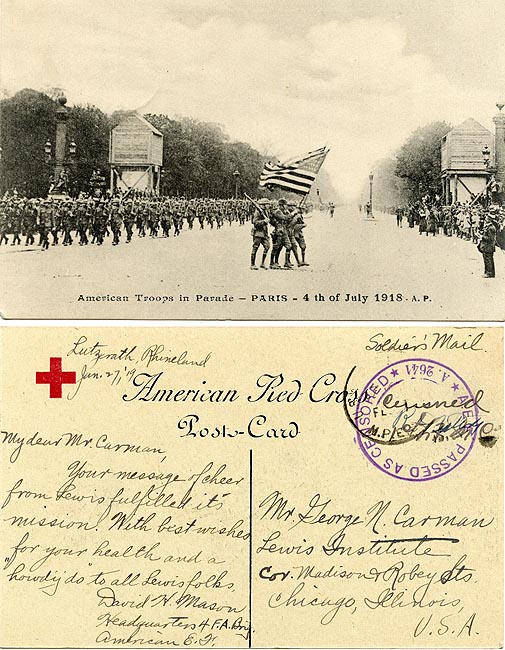 American Troops in Parade – PARIS - 4 th of July 1918 - A. P.
Lutzerath, Rhineland
Jan. 27, '19
Soldier's Mail.
American Red Cross
Post-Card
A.E.F. PASSED AS CENSORED
A. 2641
Censored
M.P.E
My dear Mr. Carman,
Your message of cheer
from Lewis fulfilled it's
mission. With best wishes
for your health and a
"howdy do" to all Lewis folks,
David H. Mason
Headquarters 4 F.A. Brig.
American E. F.
Mr. George N. Carman
Lewis Institute
Cor. Madison & Robey Sts.
Chicago, Illinois,
U.S.A.